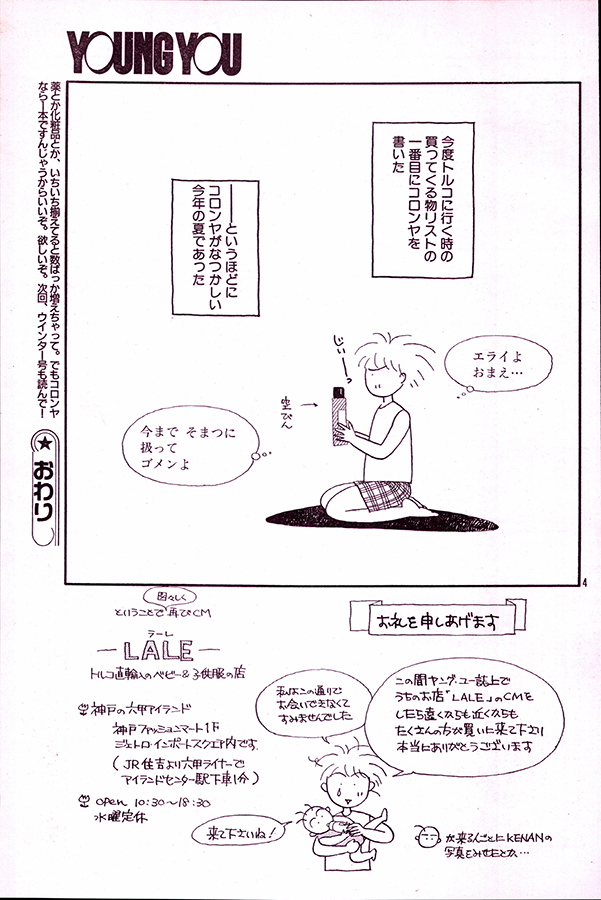 YOUNG YOU
今度トルコに行く時の
買ってくる物リストの
一番目にコロンヤを
書いた
――というほどに
コロンヤがなつかしい
今年の夏であった
じぃーっ
エライよ
おまえ…
空びん
今まで そまつに
扱って
ゴメンよ
薬とか化粧品とか、いちいち揃えてると数ばっか増えちゃって。でもコロンヤ
なら一本ですんじゃうからいいぞ。欲しいぞ。次回、ウインター号も読んで!
★おわり
4
お礼を申しあげます
この間ヤング・ユー誌上で
うちのお店「LALE」のCMを
したら遠くからも近くからも
たくさんの方が買いに来て下さり
本当にありがとうございます
私はこの通りで
お会いできなくて
すみませんでした
図々しく
ということで再びCM
ラーレ
―LALE―
トルコ直輸入のベビー&子供服の店
神戸の六甲アイランド
神戸ファッションマート1F
ジェトロ・インポートスクエア内です
(JR住吉より六甲ライナーで
アイランドセンター駅下車1分)
open 10:30～18:30
水曜定休
来て下さいね!
が来る人ごとにKENANの
写真をみせたとか…